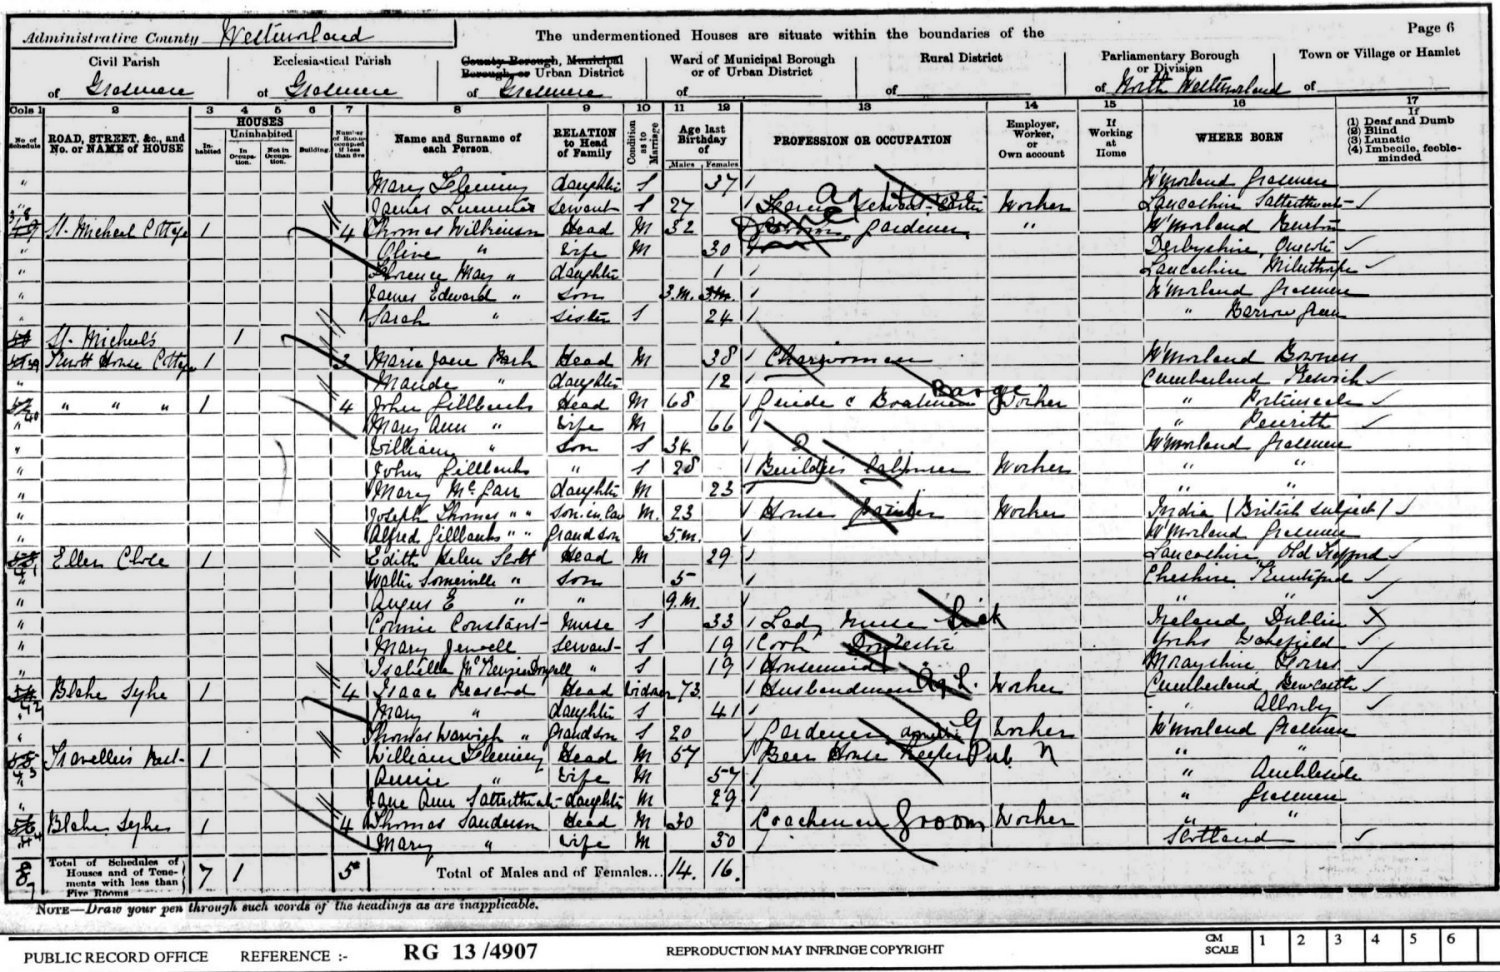 Administrative County Westmorland The undermentioned Houses are situate within the boundaries of the Page 6
Civil Parish Ecclesiastical Parish County Borough, Municipal Borough, or Urban District Ward of Municipal Borough or of Urban District Rural District Parliamentary Borough or Division Town or Village or Hamlet
of Grasmere of Grasmere of Grasmere of of of North Westmorland of
Cols 1 2 3 4 5 6 7 8 9 10 11 12 13 14 15 16 17
No. of Schedule ROAD, STREET, &c., and No. or NAME of HOUSE HOUSES Inhabited Uninhabited In Occupation. Not in Occupation. Building. Number of Rooms occupied if less than five Name and Surname of each Person RELATION to Head of Family Condition as to Marriage Age last Birthday of Males Females PROFESSION OR OCCUPATION Employer, Worker, or Own account If Working at Home WHERE BORN If (1) Deaf and Dumb (2) Blind (3) Lunatic (4) Imbecile, feeble-minded
" Mary Fleming daughter S 37 W'morland Grasmere
" James servant S 27 servant Worker Lancashire Satterthwaite
38 St. Micheal Cottage 1 4 Thomas Wilkinson Head M 32 gardener " W'morland
" Olive " Wife M 30 Derbyshire
" Florence May " daughter 1 Lancashire Milnthorpe
" James Edward " Son 3.m. 3.m. W'morland Grasmere
" Sarah " Sister S 24 " Barrow
St. Micheal's 1
39 Knott House Cottage 1 3 Maria Jane Head M 38 Charwoman W'morland Bowness
" Maude " daughter 12 Cumberland Keswick
40 " " " 1 4 John Gillbanks Head M 68 Guide & Boatman Barge Worker " Portinscale
" Mary Ann " Wife M 66 " Penrith
" William " Son S 34 W'morland Grasmere
" John Gillbanks " S 28 Builders Worker " "
" Mary Mc Gaw daughter M 23 " "
" Joseph Thomas " " Son-in-law M. 23 House painter Worker India (British subject)
" Alfred Gillbanks " " Grandson 5.m. W'morland Grasmere
41 Ellen Close 1 Edith Helen Scott Head M 29 Lancashire, Old Trafford
" Walter Somerville " Son 5 Cheshire Knutsford
" Angus E " " 9.m. " "
" Connie Constant Nurse S 33 Lady nurse Sick Ireland Dublin
" Mary Jewell Servant S 19 Cook Domestic Yorks Wakefield
" Isabella McKenzie " S 19 Housemaid Morayshire Forres
42 Blake Syke 1 4 Isaac Head Widower 73 Husbandman Ag. L. Worker Cumberland Bewcastle
" Mary " daughter S 41 " Allonby
" Thomas Warwick " Grandson S 20 Gardener domestic G Worker W'morland Grasmere
43 Travellers Rest 1 William Fleming Head M 57 Beer House Keeper Pub. N " "
" Annie " Wife M 57 " Ambleside
" Jane Ann Satterthwaite daughter M 29 " Grasmere
44 Blake Syke 1 4 Thomas Sanderson Head M 30 Coachman Groom Worker " "
" Mary " Wife M 30 Scotland
8 Total of Schedules of Houses and of Tenements with less than Five Rooms 7 1 5 Total of Males and of Females... 14. 16.
NOTE—Draw your pen through such words of the headings as are inapplicable.
PUBLIC RECORD OFFICE REFERENCE :- RG 13/4907 REPRODUCTION MAY INFRINGE COPYRIGHT CM SCALE 1 2 3 4 5 6